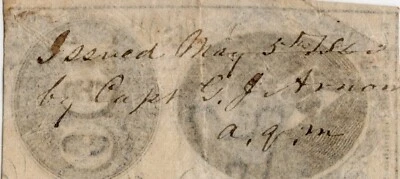 Issued May 5th
by Capt G. J. Arnom
a. q. m